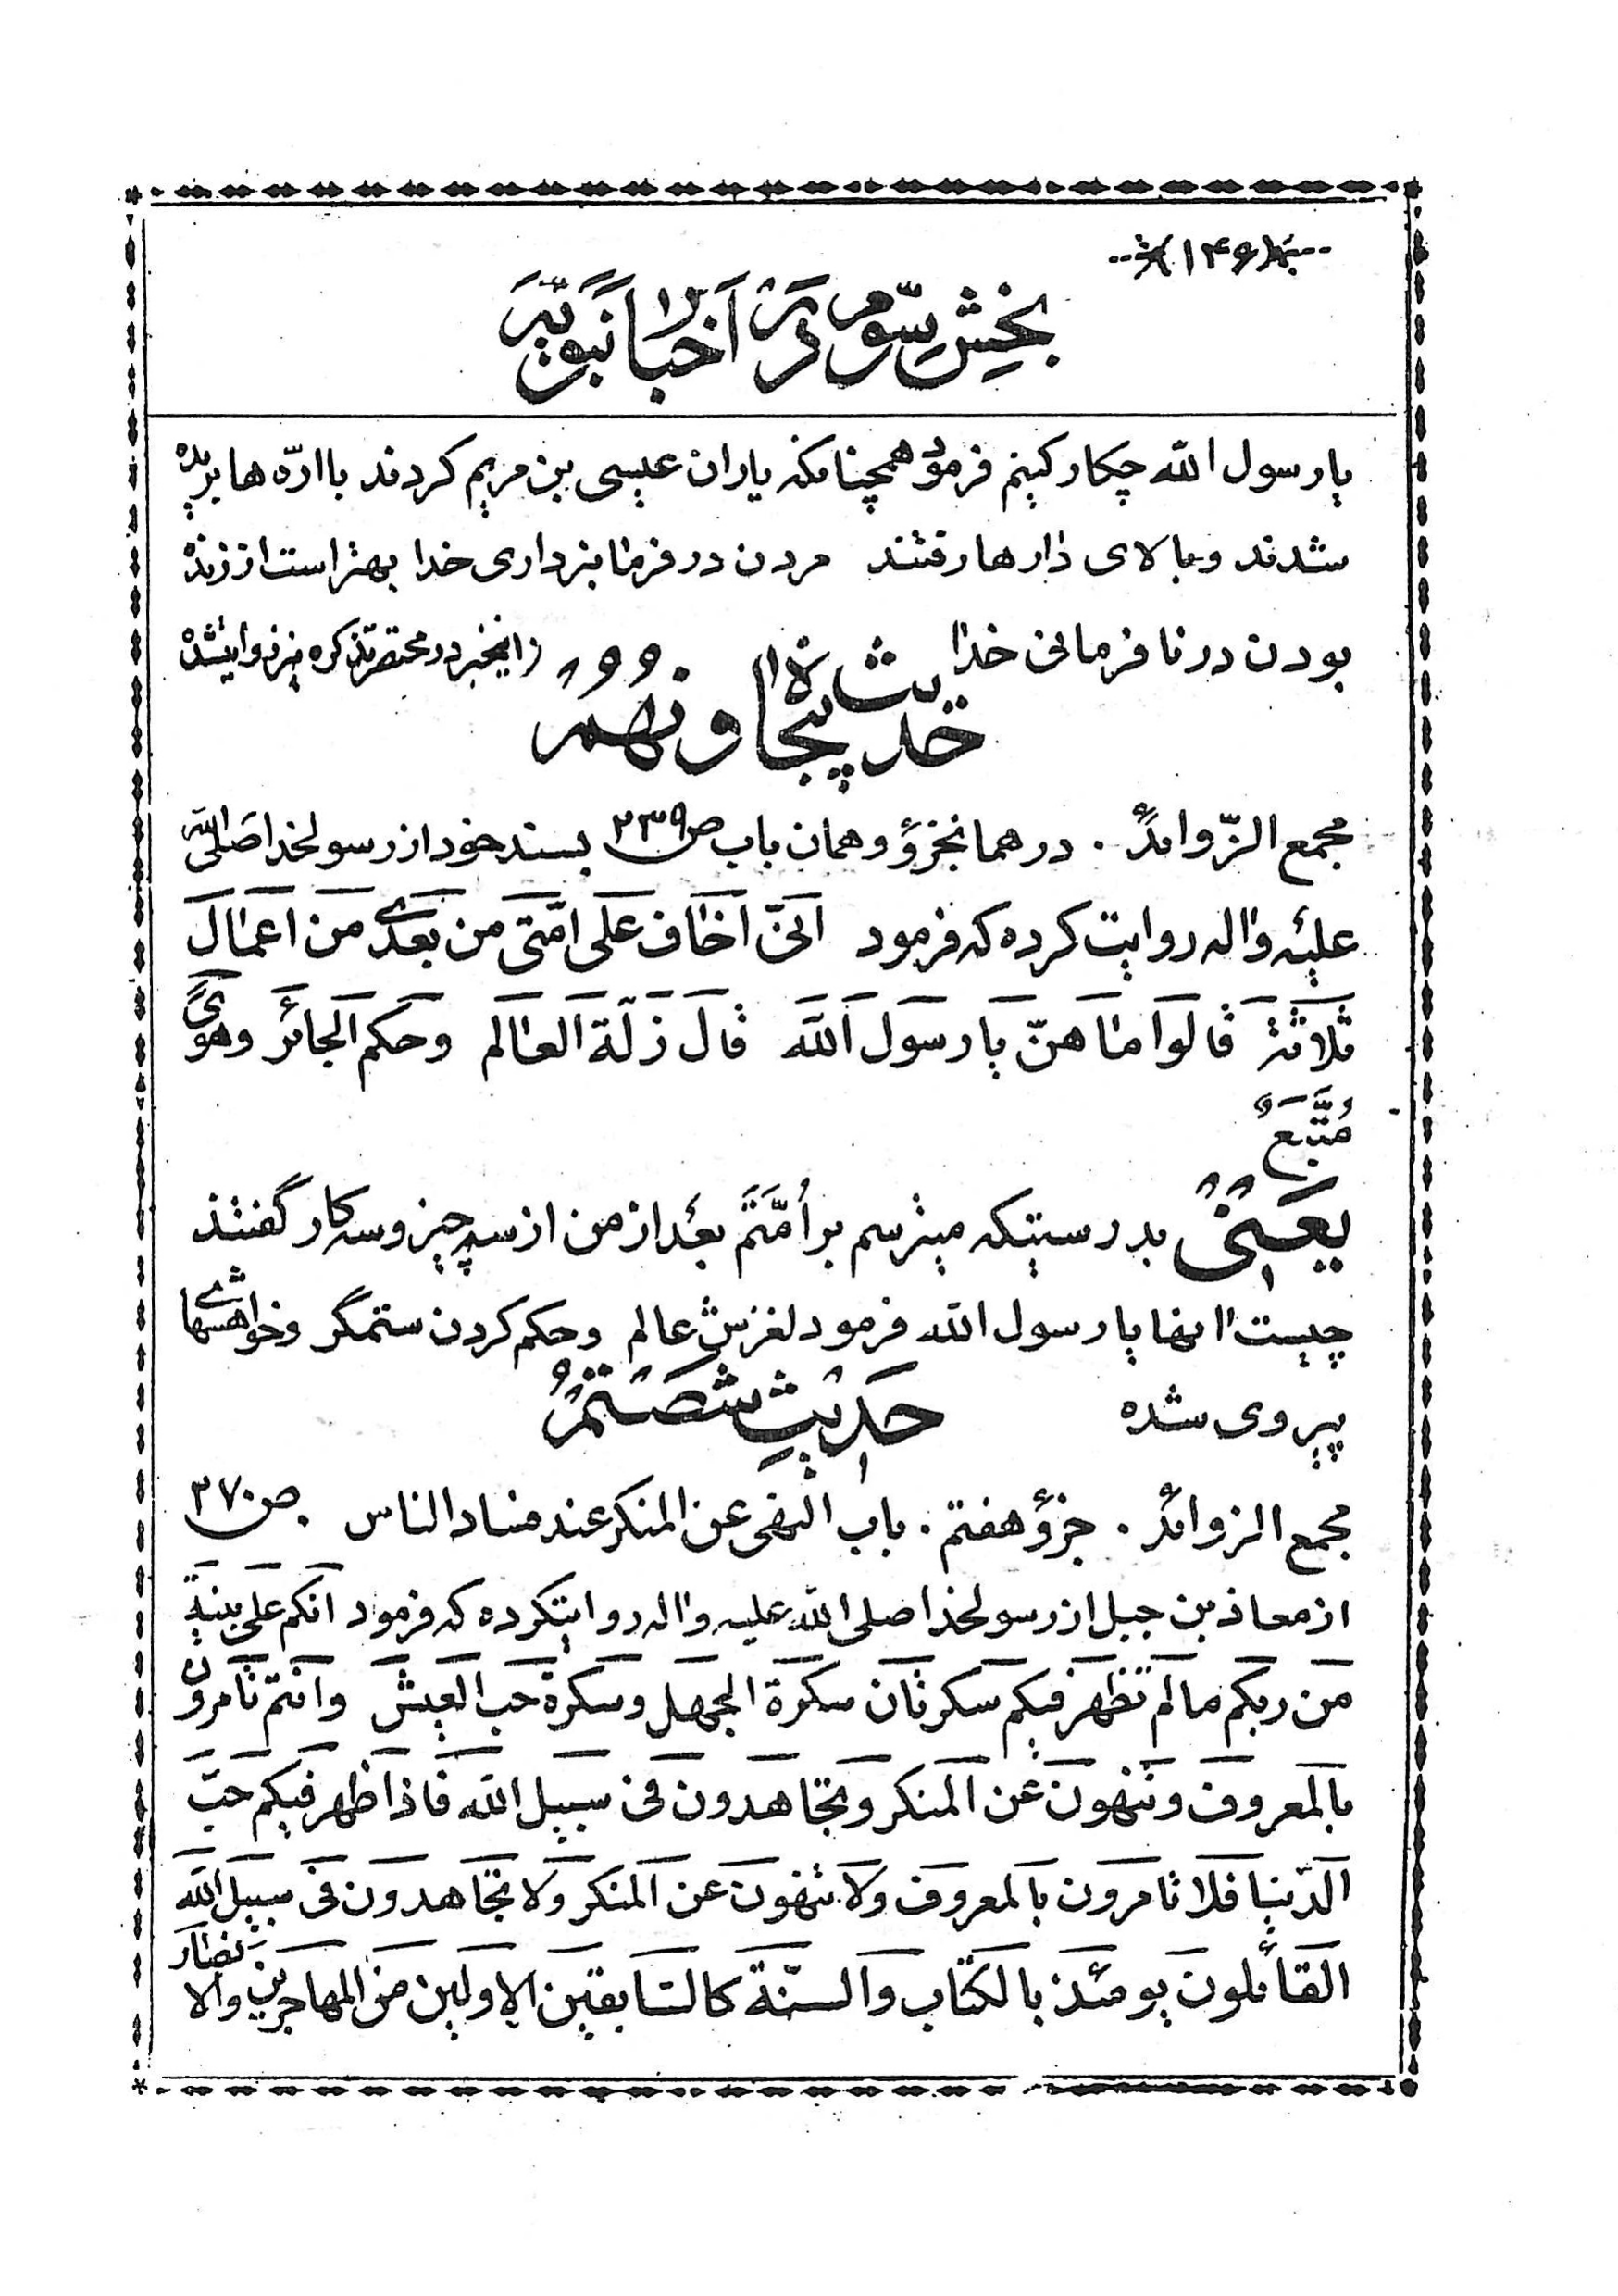 ۱۴۶
بخش سوّم در اخبار نبویّه
یا رسول الله چکار کنیم فرمود همچنانکه یاران عیسی بن مریم کردند با ارّه ها بریده
شدند و بالای دارها رفتند مردن در فرمانبرداری خدا بهتر است از زنده
بودن در نافرمانی خدا (اینخبر در مختصر تذکره نیز روایتشده
حدیث پنجاه و نهم
مجمع الزّوائد . در همانجزؤ و همان باب ص۲۳۹ بسند خود از رسولخدا صلی الله
علیه واله روایت کرده که فرمود انّی اخاف علی امّتی من بعدی من اعمال
ثلاثة قالوا ما هنّ یا رسول الله قال زلّة العالم وحکم الجائر وهویً
مُتَّبَعٌ
یعنی بدرستیکه میترسم بر اُمَّتم بعد از من از سه چیز و سه کار گفتند
چیست انها یا رسول الله فرمود لغزش عالم وحکم کردن ستمگر وخواهشهای
پیروی شده
حدیث شصتم
مجمع الزوائد . جزؤ هفتم . باب النهی عن المنکر عند فساد الناس . ص۲۷۰
از معاذ بن جبل از رسولخدا صلی الله علیه واله روایتکرده که فرمود انکم علی بینةٍ
من ربکم ما لم تظهر فیکم سکرتان سکرة الجهل وسکرة حب العیش وانتم تامرون
بالمعروف وتنهون عن المنکر وتجاهدون فی سبیل الله فاذا ظهر فیکم حبّ
الدّنیا فلا تامرون بالمعروف ولا تنهون عن المنکر ولا تجاهدون فی سبیل الله
القائلون یومئذ بالکتاب والسنّة کالسّابقین الاولین من المهاجرین والانصار